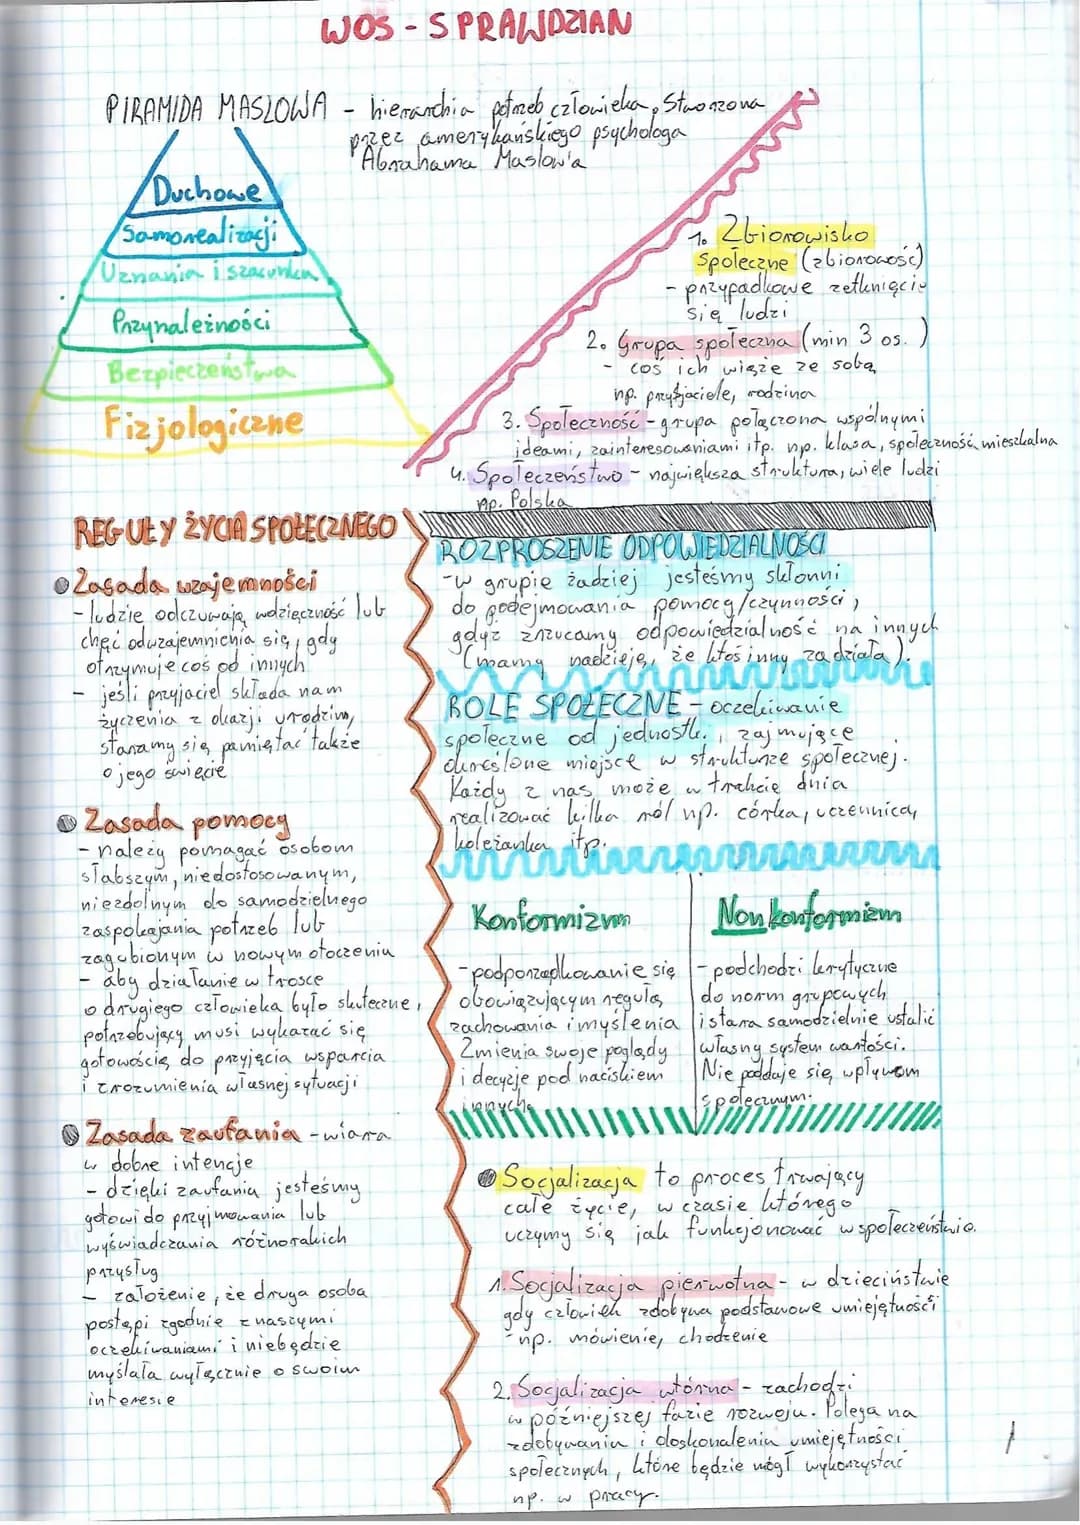 WOS - SPRAWDZIAN
PIRAMIDA MASLOWA - hierarchia potrzeb człowieka, Stworzona
przez amerykańskiego psychologa
Abrahama Maslow'a
Duchowe
Samorealizacji
Uznania i szacunku
Przynależności
Bezpieczeństwa
Fizjologiczne
1. Zbiorowisko
społeczne (zbiorowość)
- przypadkowe zetknięcie
się ludzi
2. Grupa społeczna (min 3 os. )
- coś ich wiąże ze sobą,
np. przyjaciele, rodzina
3. Społeczność - grupa połączona wspólnymi
ideami, zainteresowaniami itp. np. klasa, społeczność mieszkalna
4. Społeczeństwo - największa struktura, wiele ludzi
np. Polska
REGUŁY ŻYCIA SPOŁECZNEGO
Zasada wzajemności
- ludzie odczuwają wdzięczność lub
chęć odwzajemnienia się, gdy
otrzymuje coś od innych
- jeśli przyjaciel składa nam
życzenia z okazji urodzin,
staramy się pamiętać także
o jego święcie
Zasada pomocy
- należy pomagać osobom
słabszym, niedostosowanym,
niezdolnym do samodzielnego
zaspokajania potrzeb lub
zagubionym w nowym otoczeniu
- aby działanie w trosce
o drugiego człowieka było skuteczne,
potrzebujący musi wykazać się
gotowością do przyjęcia wsparcia
i zrozumienia własnej sytuacji
Zasada zaufania - wiara
w dobre intencje
- dzięki zaufaniu jesteśmy
gotowi do przyjmowania lub
wyświadczania różnorakich
przysług
- założenie, że druga osoba
postąpi zgodnie z naszymi
oczekiwaniami i niebędzie
myślała wyłącznie o swoim
interesie
ROZPROSZENIE ODPOWIEDZIALNOŚCI
- w grupie żadziej jesteśmy skłonni
do podejmowania pomocy/czynności,
gdyż zrzucamy odpowiedzialność na innych
(mamy nadzieję, że ktoś inny zadziała).
ROLE SPOŁECZNE - oczekiwanie
społeczne od jednostki, zajmujące
określone miejsce w strukturze społecznej.
Każdy z nas może w trakcie dnia
realizować kilka ról np. córka, uczennica,
koleżanka itp.
Konformizm
- podporządkowanie się
obowiązującym regułą
zachowania i myślenia
Zmienia swoje poglądy
i decyzje pod naciskiem
innych.
Nonkonformizm
- podchodzi krytyczne
do norm grupowych
i stara samodzielnie ustalić
własny system wartości.
Nie poddaje się wpływom
społecznym.
Socjalizacja to proces trwający
całe życie, w czasie którego
uczymy się jak funkcjonować w społeczeństwie.
1. Socjalizacja pierwotna - w dzieciństwie
gdy człowiek zdobywa podstawowe umiejętności
np. mówienie, chodzenie
2. Socjalizacja wtórna - zachodzi
w późniejszej fazie rozwoju. Polega na
zdobywaniu i doskonaleniu umiejętności
społecznych, które będzie mógł wykorzystać
np. w pracy.
1